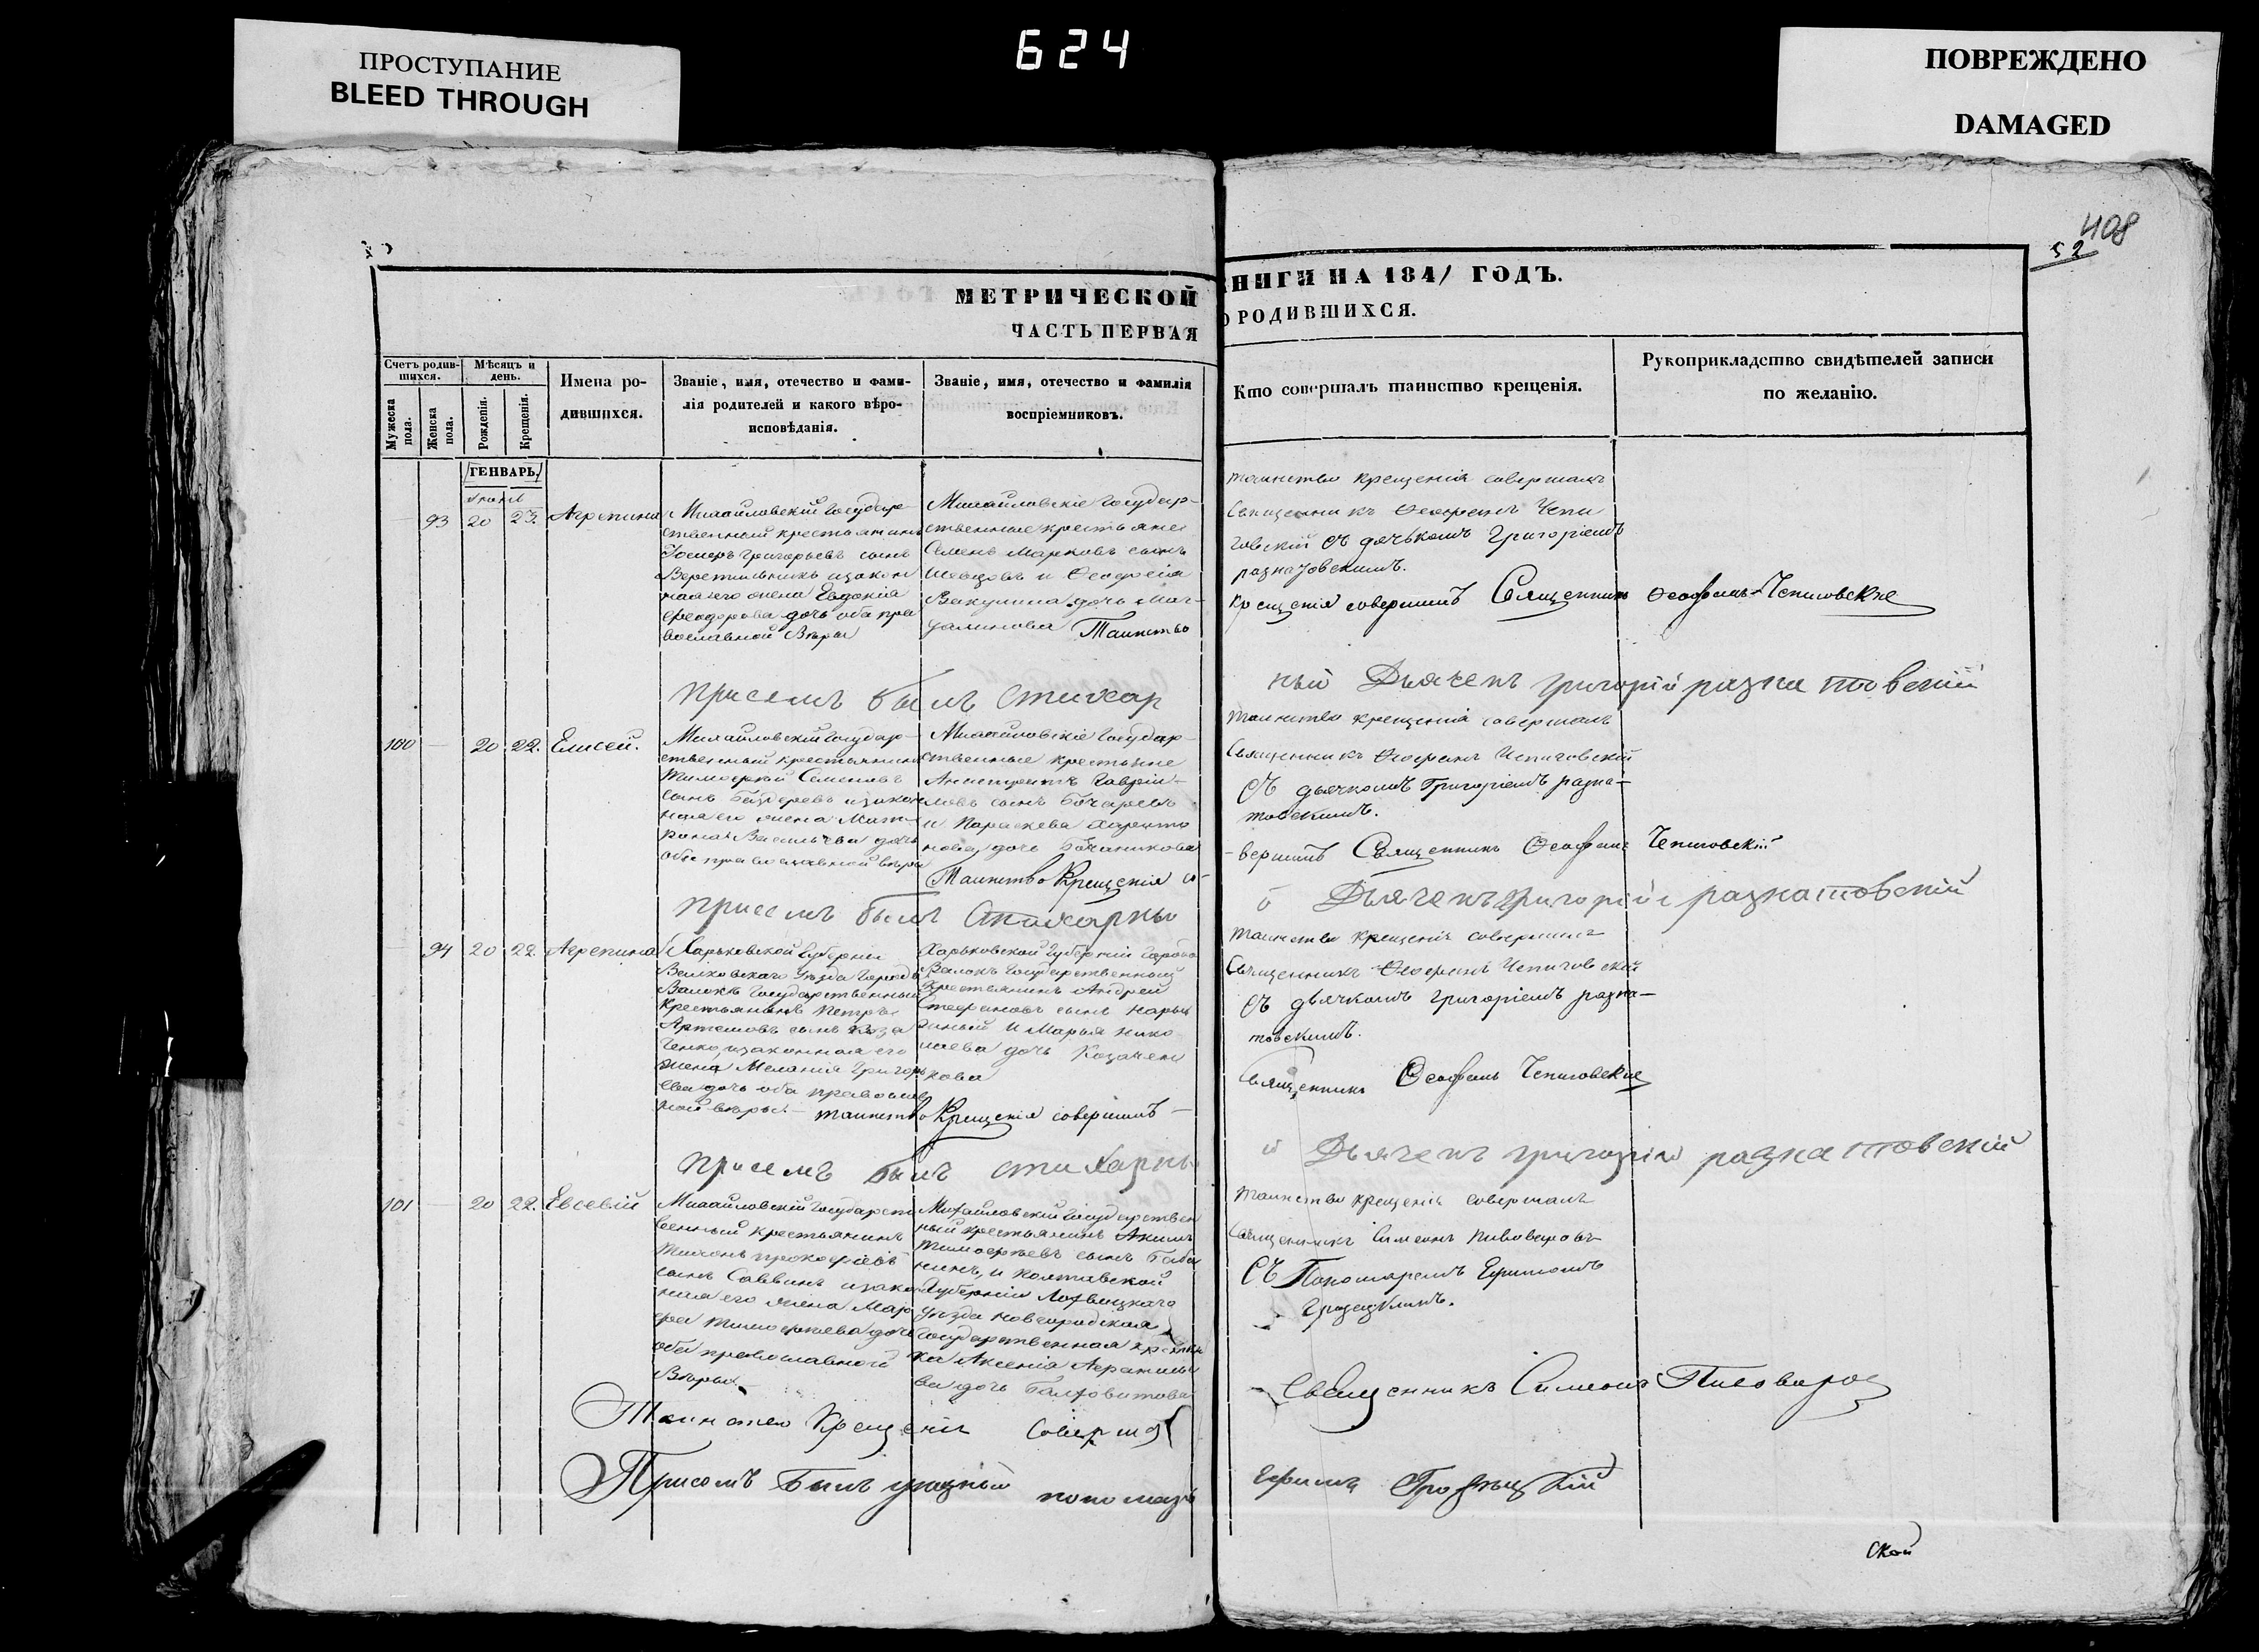 ПРОСТУПАНИЕ
BLEED THROUGH
624
ПОВРЕЖДЕНО
DAMAGED
408
52
МЕТРИЧЕСКОЙ
ЧАСТЬ ПЕРВАЯ
НИГИ НА 1841 ГОДЪ.
О РОДИВШИХСЯ.
Счетъ родив-
шихся.
Мужеска
пола.
Женска
пола.
Мѣсяцъ и
день.
Рожденія.
Крещенія.
Имена ро-
дившихся.
Званіе, имя, отечество и фами-
лія родителей и какого вѣро-
исповѣданія.
Званіе, имя, отечество и фамилія
воспріемниковъ.
Кто совершалъ таинство крещенія.
Рукоприкладство свидѣтелей записи
по желанію.
ГЕНВАРЬ.
93 20 23. Агрепина
Михайловскій Государ-
ственный крестьянинъ
Григорьевъ сынъ
законная его жена Евдокія
Феодорова дочь оба пра
вославной Вѣры
Михайловскіе Государ-
ственные крестьяне
Семенъ Марковъ сынъ
и Феодосія
дочь
Таинство
таинство крещенія совершалъ
Священникъ Феофанъ Чепи
говскій съ дячькомъ Григоріемъ
разнатовскимъ.
крещенія совершилъ Священникъ Феофанъ Чепиговскіе
присемъ былъ стихар
ный Дьячекъ григорій разнатовскій
100 20 22. Елисей.
Михайловскій Государ-
ственный крестьянинъ
Тимофей Семеновъ
сынъ
ная его жена Мат-
рона Васильева дочь
оба православной вѣры
Михайловскіе Государ-
ственные крестьяне
Гаврiи-
ловъ сынъ Бочаревъ
и Параскева
нова дочь
Таинство Крещенія со-
таинство крещенія совершалъ
Священникъ Феофанъ Чепиговскій
Съ дьячкомъ Григоріемъ разна-
товскимъ.
-вершилъ Священникъ Феофанъ Чепиговскій
присемъ былъ Стихарны
й Дьячекъ григорій разнатовскій
94 20 22 Агрепина
Харьковской Губерніи
Валковскаго Уѣзда Города
Валокъ Государственный
Крестьянинъ Петръ
Артемовъ сынъ Коза
ченко, и законная его
жена Меланія Григорь
ева дочь оба православ
ной вѣры. - таинство Крещенія совершилъ -
Харьковской Губерніи Города
Валокъ Государственный
Крестьянинъ Андрей
Стефановъ сынъ
и Марья Нико
лаева дочь Козачен
кова
таинство крещенія совершилъ
Священникъ Феофанъ Чепиговской
Съ дьячкомъ григоріемъ разна-
товскимъ.
Священникъ Феофанъ Чепиговскіе
присемъ былъ стихарны
й Дьячекъ григорій разнатовскій
101 20 22. Евсевій
Михайловскій Государст
венный крестьянинъ
Тихонъ прокофіевъ
сынъ Саввинъ и зако
ная его жена Мар
фа Тимофеева дочь
оба православной
Вѣры.
Михайловскій Государствен
ный крестьянинъ Акимъ
Тимофеевъ сынъ
и Полтавской
Губерніи Лохвицкаго
уѣзда
Государственная
ка Аксенія
ва дочь
таинство крещенія совершалъ
Священникъ Симеонъ Пивоваровъ
Съ Пономаремъ Ефимомъ
Таинство Крещенія Соверша
Священникъ Симеонъ Пивоваров
Присемъ Былъ указный пономарь
Ефимъ
ской